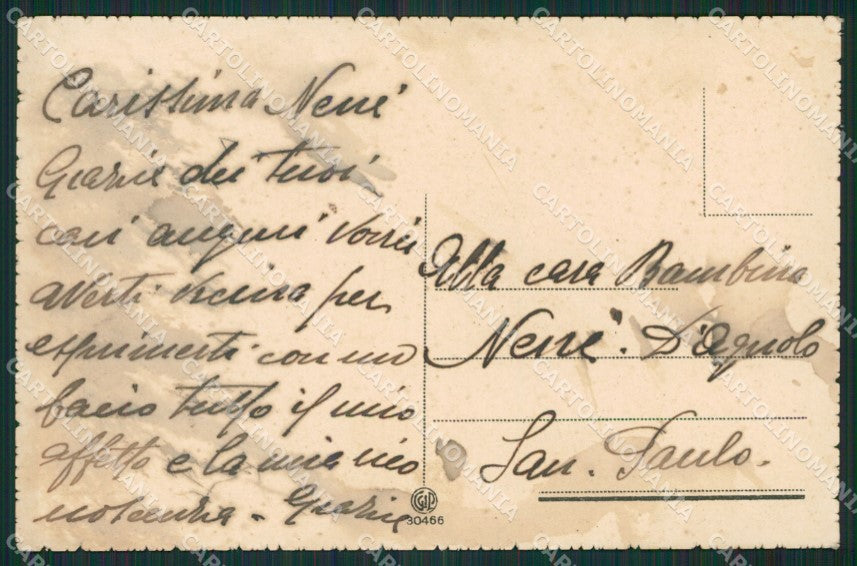 Carissima Nenè
Grazie dei tuoi
cari auguri vorrei
averti vicina per
esprimerti con un
bacio tutto il mio
affetto e la mia rico
noscenza - Grazie
Alla cara Bambina
Nenè. D'Agnolo
San. Paulo.
30466
CARTOLINOMANIA